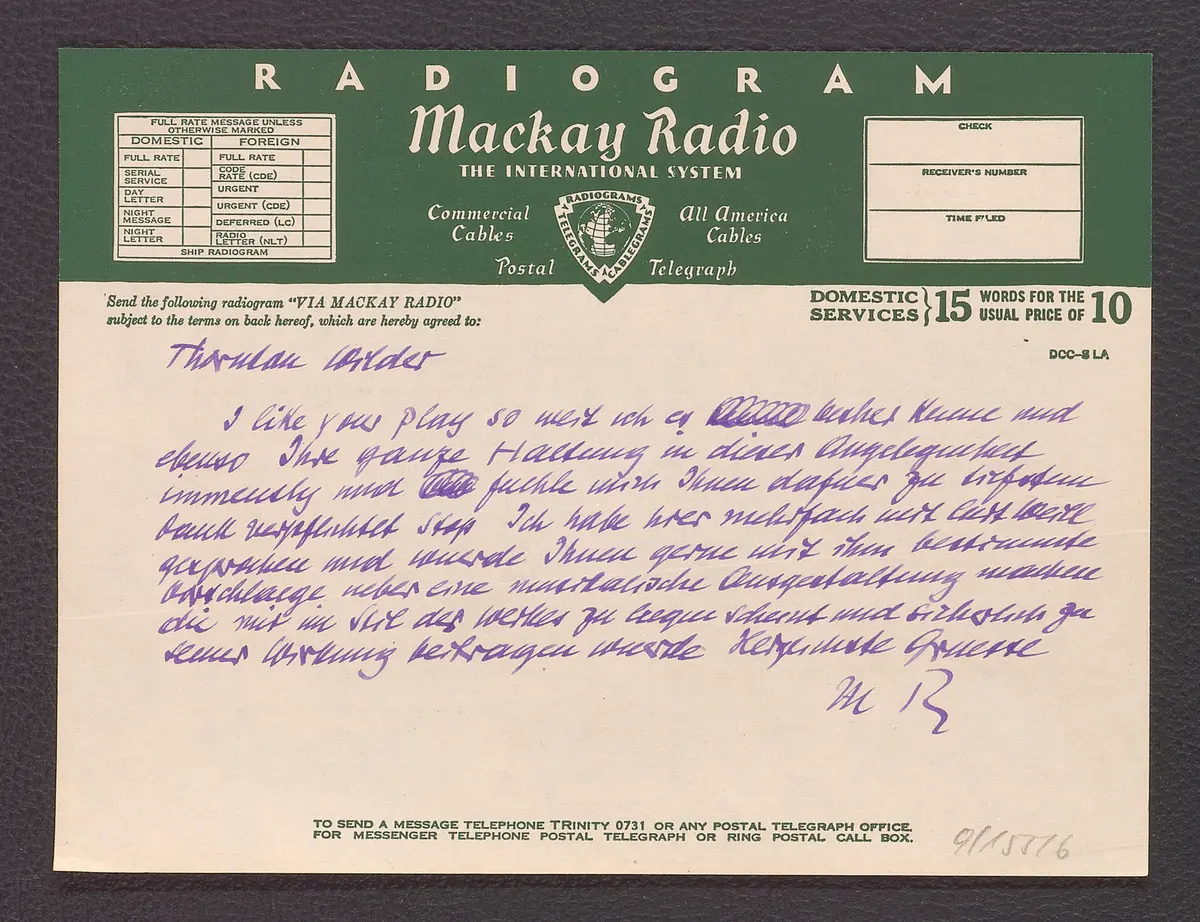 RADIOGRAM
Mackay Radio
THE INTERNATIONAL SYSTEM
FULL RATE MESSAGE UNLESS
OTHERWISE MARKED
DOMESTIC FOREIGN
FULL RATE FULL RATE
SERIAL SERVICE CODE RATE (CDE)
DAY LETTER URGENT
URGENT (CDE)
NIGHT MESSAGE DEFERRED (LC)
NIGHT LETTER RADIO LETTER (NLT)
SHIP RADIOGRAM
Commercial Cables
All America Cables
Postal Telegraph
RADIOGRAMS
TELEGRAMS
CABLEGRAMS
CHECK
RECEIVER'S NUMBER
TIME FILED
Send the following radiogram "VIA MACKAY RADIO"
subject to the terms on back hereof, which are hereby agreed to:
DOMESTIC SERVICES } 15 WORDS FOR THE USUAL PRICE OF 10
DCC-8 LA
Thornton Wilder
I like your play so weit ich es bisher kenne und
ebenso Ihre ganze Haltung in dieser Angelegenheit
immensly und fuehle mich Ihnen dafuer zu tiefstem
Dank verpflichtet Stop Ich habe hier mehrfach mit Curt Weill
gesprochen und wuerde Ihnen gerne mit ihm bestimmte
Vorschlaege ueber eine musikalische Ausgestaltung machen
die mir im Stil des Werkes zu liegen scheint und sicherlich zu
seiner Wirkung beitragen wuerde Herzlichste Gruesse
M R
TO SEND A MESSAGE TELEPHONE TRINITY 0731 OR ANY POSTAL TELEGRAPH OFFICE.
FOR MESSENGER TELEPHONE POSTAL TELEGRAPH OR RING POSTAL CALL BOX.
9/155/6